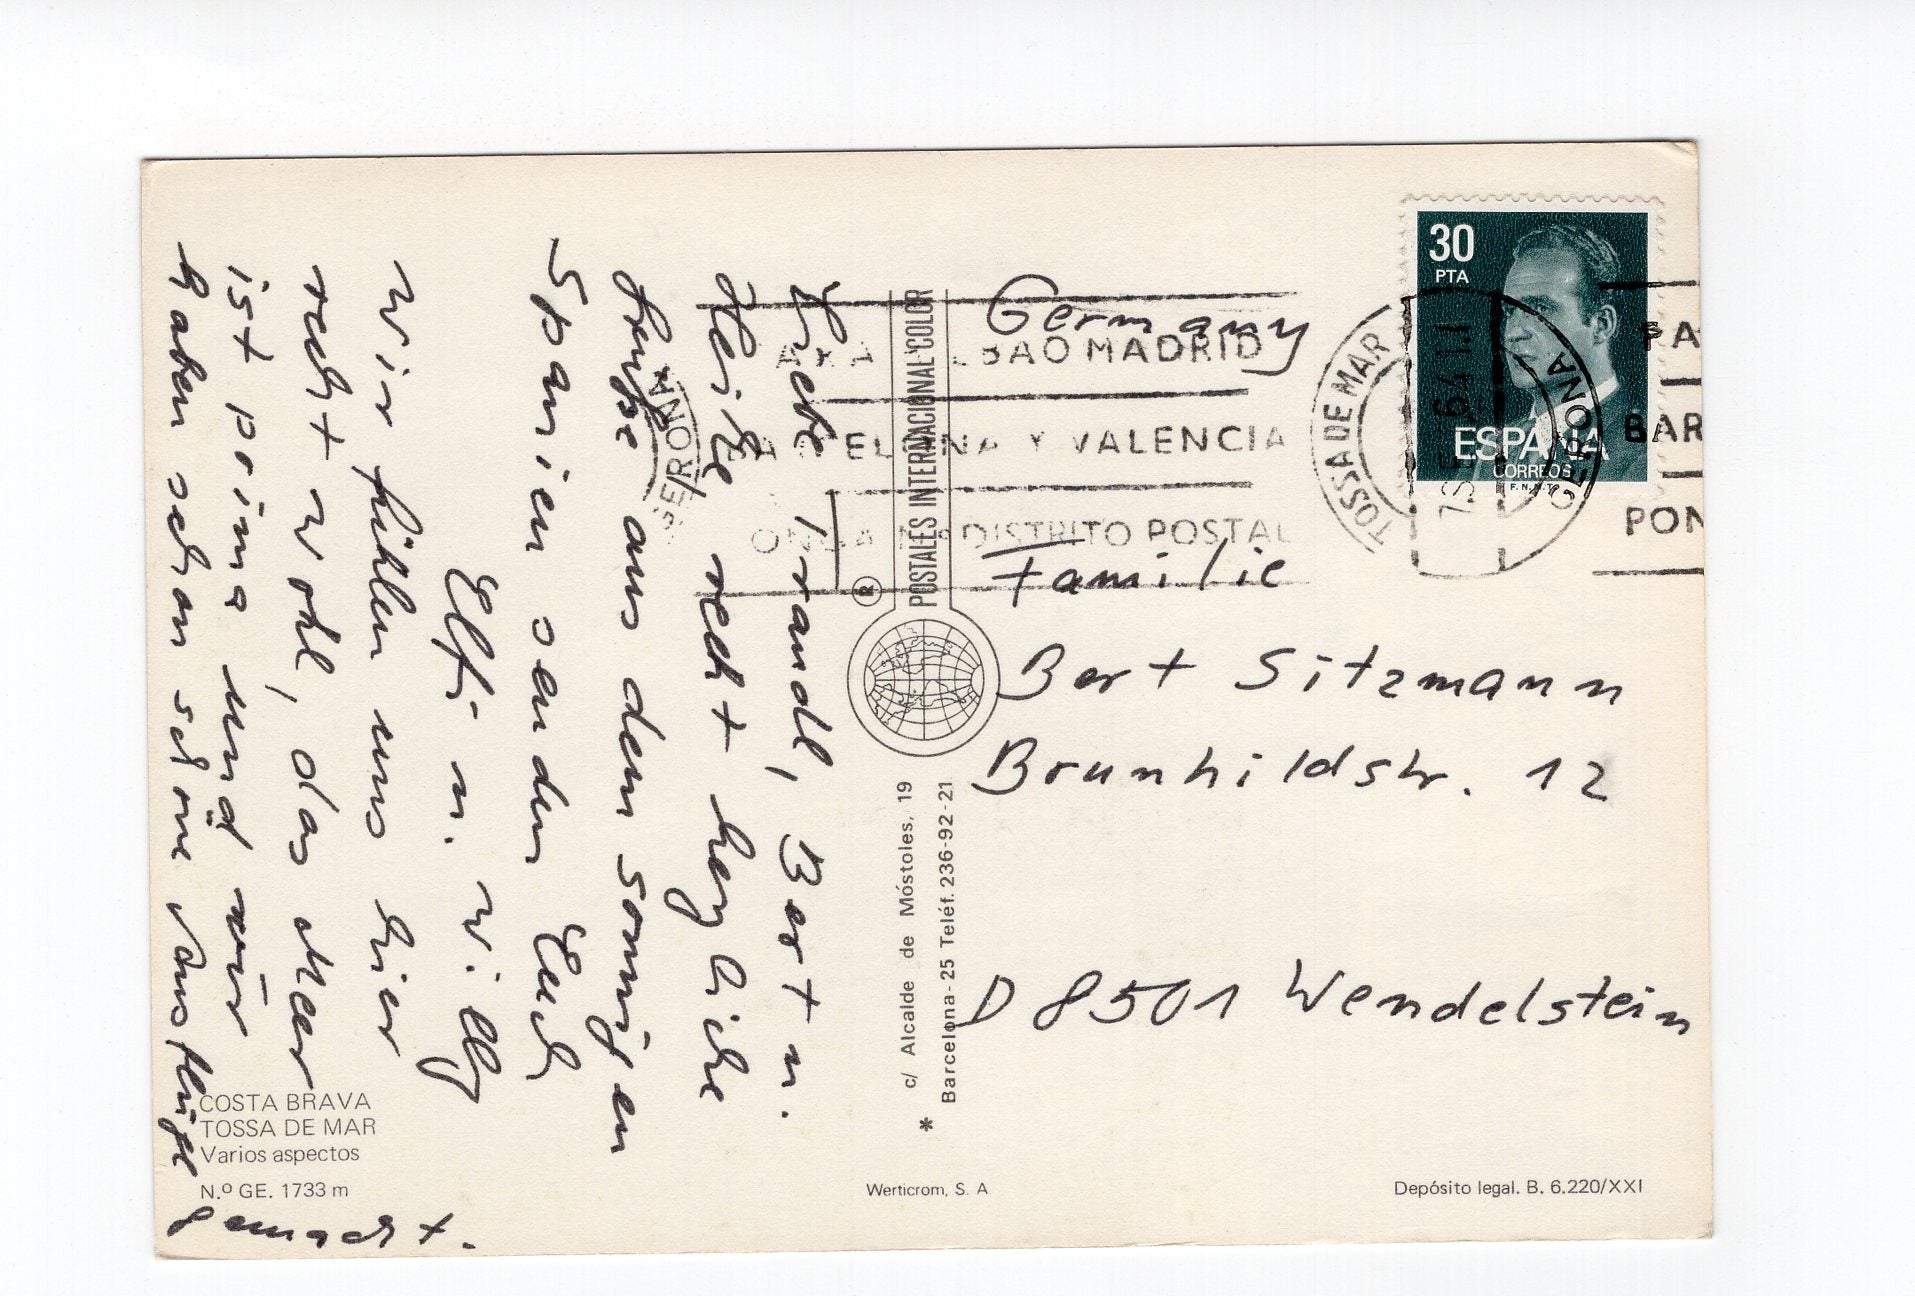 Liebe Traudl, Bert u.
Heike recht herzliche
Grüße aus dem sonnigen
Spanien senden Euch
Elfi u. Willy
Wir fühlen uns hier
recht wohl, das Meer
ist prima und wir
haben schon schöne Ausflüge
gemacht.
COSTA BRAVA
TOSSA DE MAR
Varios aspectos
N.º GE. 1733 m
POSTALES INTERNACIONAL COLOR
®
c/ Alcalde de Móstoles, 19
* Barcelona-25 Teléf. 236-92-21
Werticrom, S. A
30
PTA
ESPAÑA
CORREOS
F.N.M.T.
TOSSA DE MAR
GERONA
GERONA
BILBAO MADRID
BARCELONA Y VALENCIA
PONGA Nº DISTRITO POSTAL
BAR
PON
Germany
Familie
Bert Sitzmann
Brunhildstr. 12
D 8501 Wendelstein
Depósito legal. B. 6.220/XXI